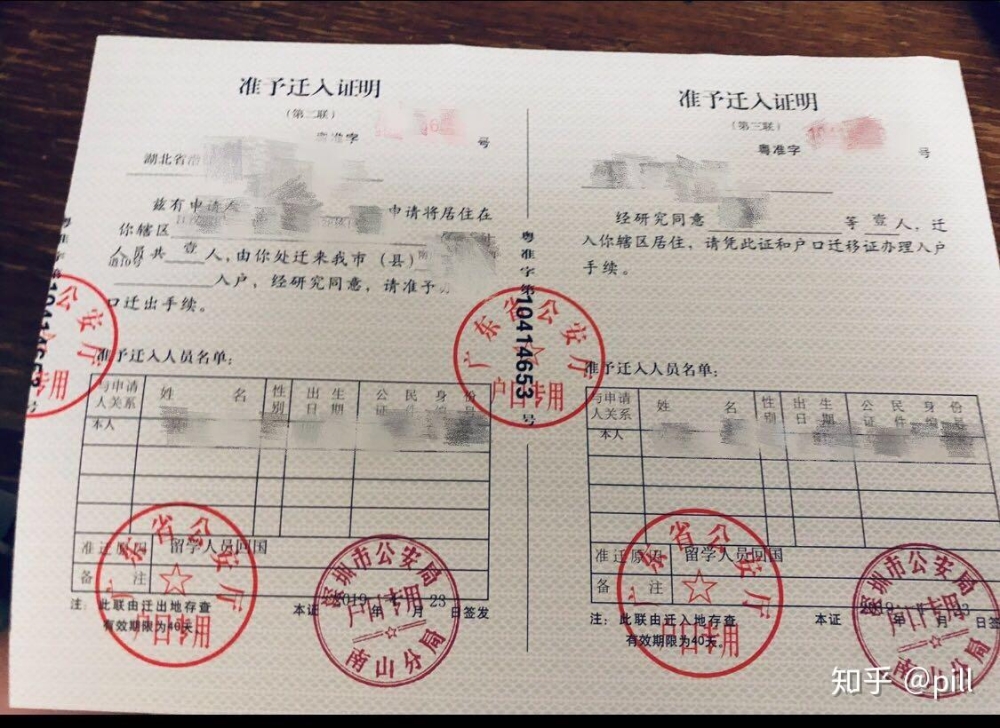 准予迁入证明
（第二联）
粤准字 号
湖北省
兹有申请人 申请将居住在
你辖区
人员共 壹 人，由你处迁来我市（县）
道10号
入户，经研究同意，请准予
口迁出手续。
准予迁入人员名单：
与申请人关系 姓 名 性别 出生日期 公民身份证件编号
本人
准迁原因 留学人员回国
备 注
注：此联由迁出地存查
有效期限为40天
本证 2019 年 月 23 日签发
广东省公安厅
户口专用
深圳市公安局
户口专用
南山分局
粤准字第10414653号
广东省公安厅
户口专用
公安厅
专用
准予迁入证明
（第三联）
粤准字 号
经研究同意 等 壹 人，迁
入你辖区居住，请凭此证和户口迁移证办理入户
手续。
准予迁入人员名单：
与申请人关系 姓 名 性别 出生日期 公民身份证件编号
本人
准迁原因 留学人员回国
备 注
注：此联由迁入地存查
有效期限为40天。
本证 年 月 日签
广东省公安厅
户口专用
深圳市公安局
户口专用
南山分局
知乎 @pill